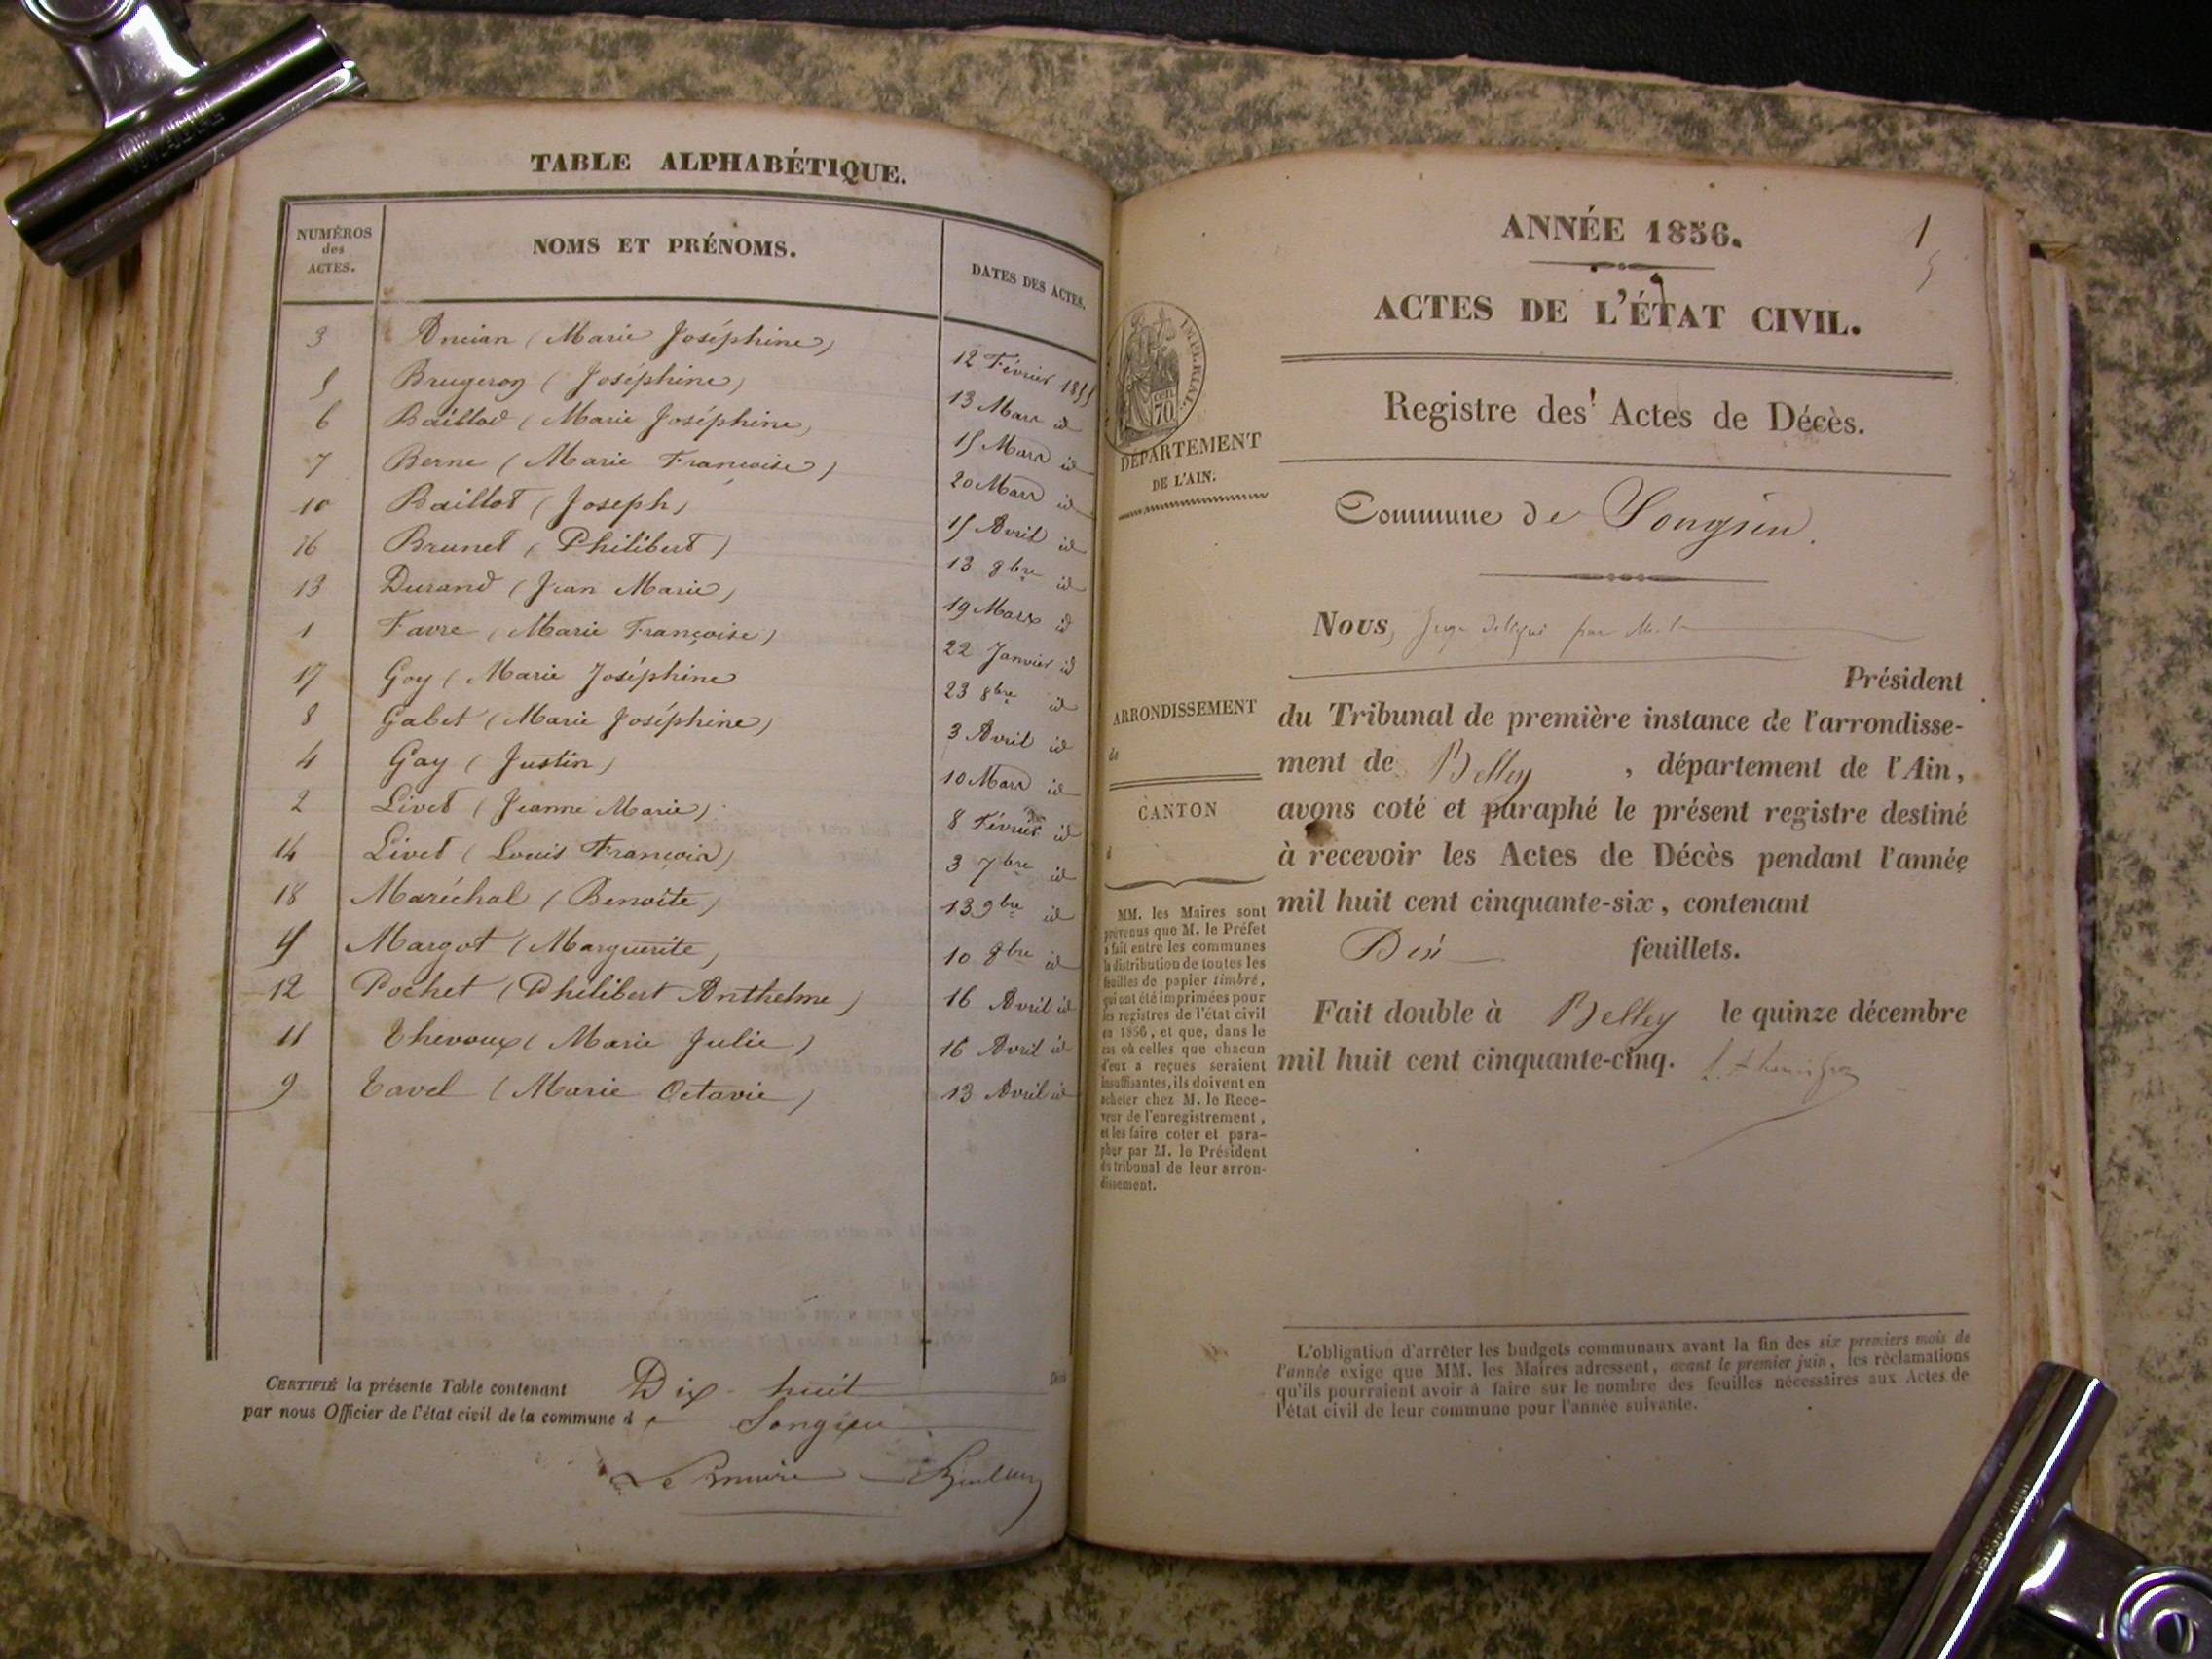 TABLE ALPHABÉTIQUE.
NUMÉROS des ACTES. NOMS ET PRÉNOMS. DATES DES ACTES.
3 Ancian (Marie Joséphine) 12 Février 1855
5 Brugeron (Joséphine) 13 Mars id
6 Baillod (Marie Joséphine) 15 Mars id
7 Berne (Marie Françoise) 20 Mars id
10 Baillot (Joseph) 15 Avril id
16 Brunet (Philibert) 13 8bre id
13 Durand (Jean Marie) 19 Mars id
1 Favre (Marie Françoise) 22 Janvier id
17 Goy (Marie Joséphine 23 8bre id
8 Gabet (Marie Joséphine) 3 Avril id
4 Gay (Justin) 10 Mars id
2 Livet (Jeanne Marie) 8 Février id
14 Livet (Louis François) 3 7bre id
18 Maréchal (Benoite) 13 9bre id
Margot (Marguerite) 10 8bre id
12 Pochet (Philibert Anthelme) 16 Avril id
11 Thevoux (Marie Julie) 16 Avril id
9 Tavel (Marie Octavie) 13 Avril id
CERTIFIÉ la présente Table contenant Dix-huit
par nous Officier de l'état civil de la commune de Songieu
Le maire
1
5
ANNÉE 1856.
ACTES DE L'ÉTAT CIVIL.
Registre des Actes de Décès.
IMPÉRIAL.
70
DÉPARTEMENT
DE L'AIN.
Commune de Songieu.
Nous, Juge délégué par M. le
Président
ARRONDISSEMENT
de
CANTON
d
du Tribunal de première instance de l'arrondisse-
ment de Belley, département de l'Ain,
avons coté et paraphé le présent registre destiné
à recevoir les Actes de Décès pendant l'année
mil huit cent cinquante-six, contenant
Dix feuillets.
Fait double à Belley le quinze décembre
mil huit cent cinquante-cinq.
MM. les Maires sont
prévenus que M. le Préfet
a fait entre les communes
la distribution de toutes les
feuilles de papier timbré,
qui ont été imprimées pour
les registres de l'état civil
en 1856, et que, dans le
cas où celles que chacun
d'eux a reçues seraient
insuffisantes, ils doivent en
acheter chez M. le Rece-
veur de l'enregistrement,
et les faire coter et para-
pher par M. le Président
du tribunal de leur arron-
dissement.
L'obligation d'arrêter les budgets communaux avant la fin des six premiers mois de
l'année exige que MM. les Maires adressent, avant le premier juin, les réclamations
qu'ils pourraient avoir à faire sur le nombre des feuilles nécessaires aux Actes de
l'état civil de leur commune pour l'année suivante.